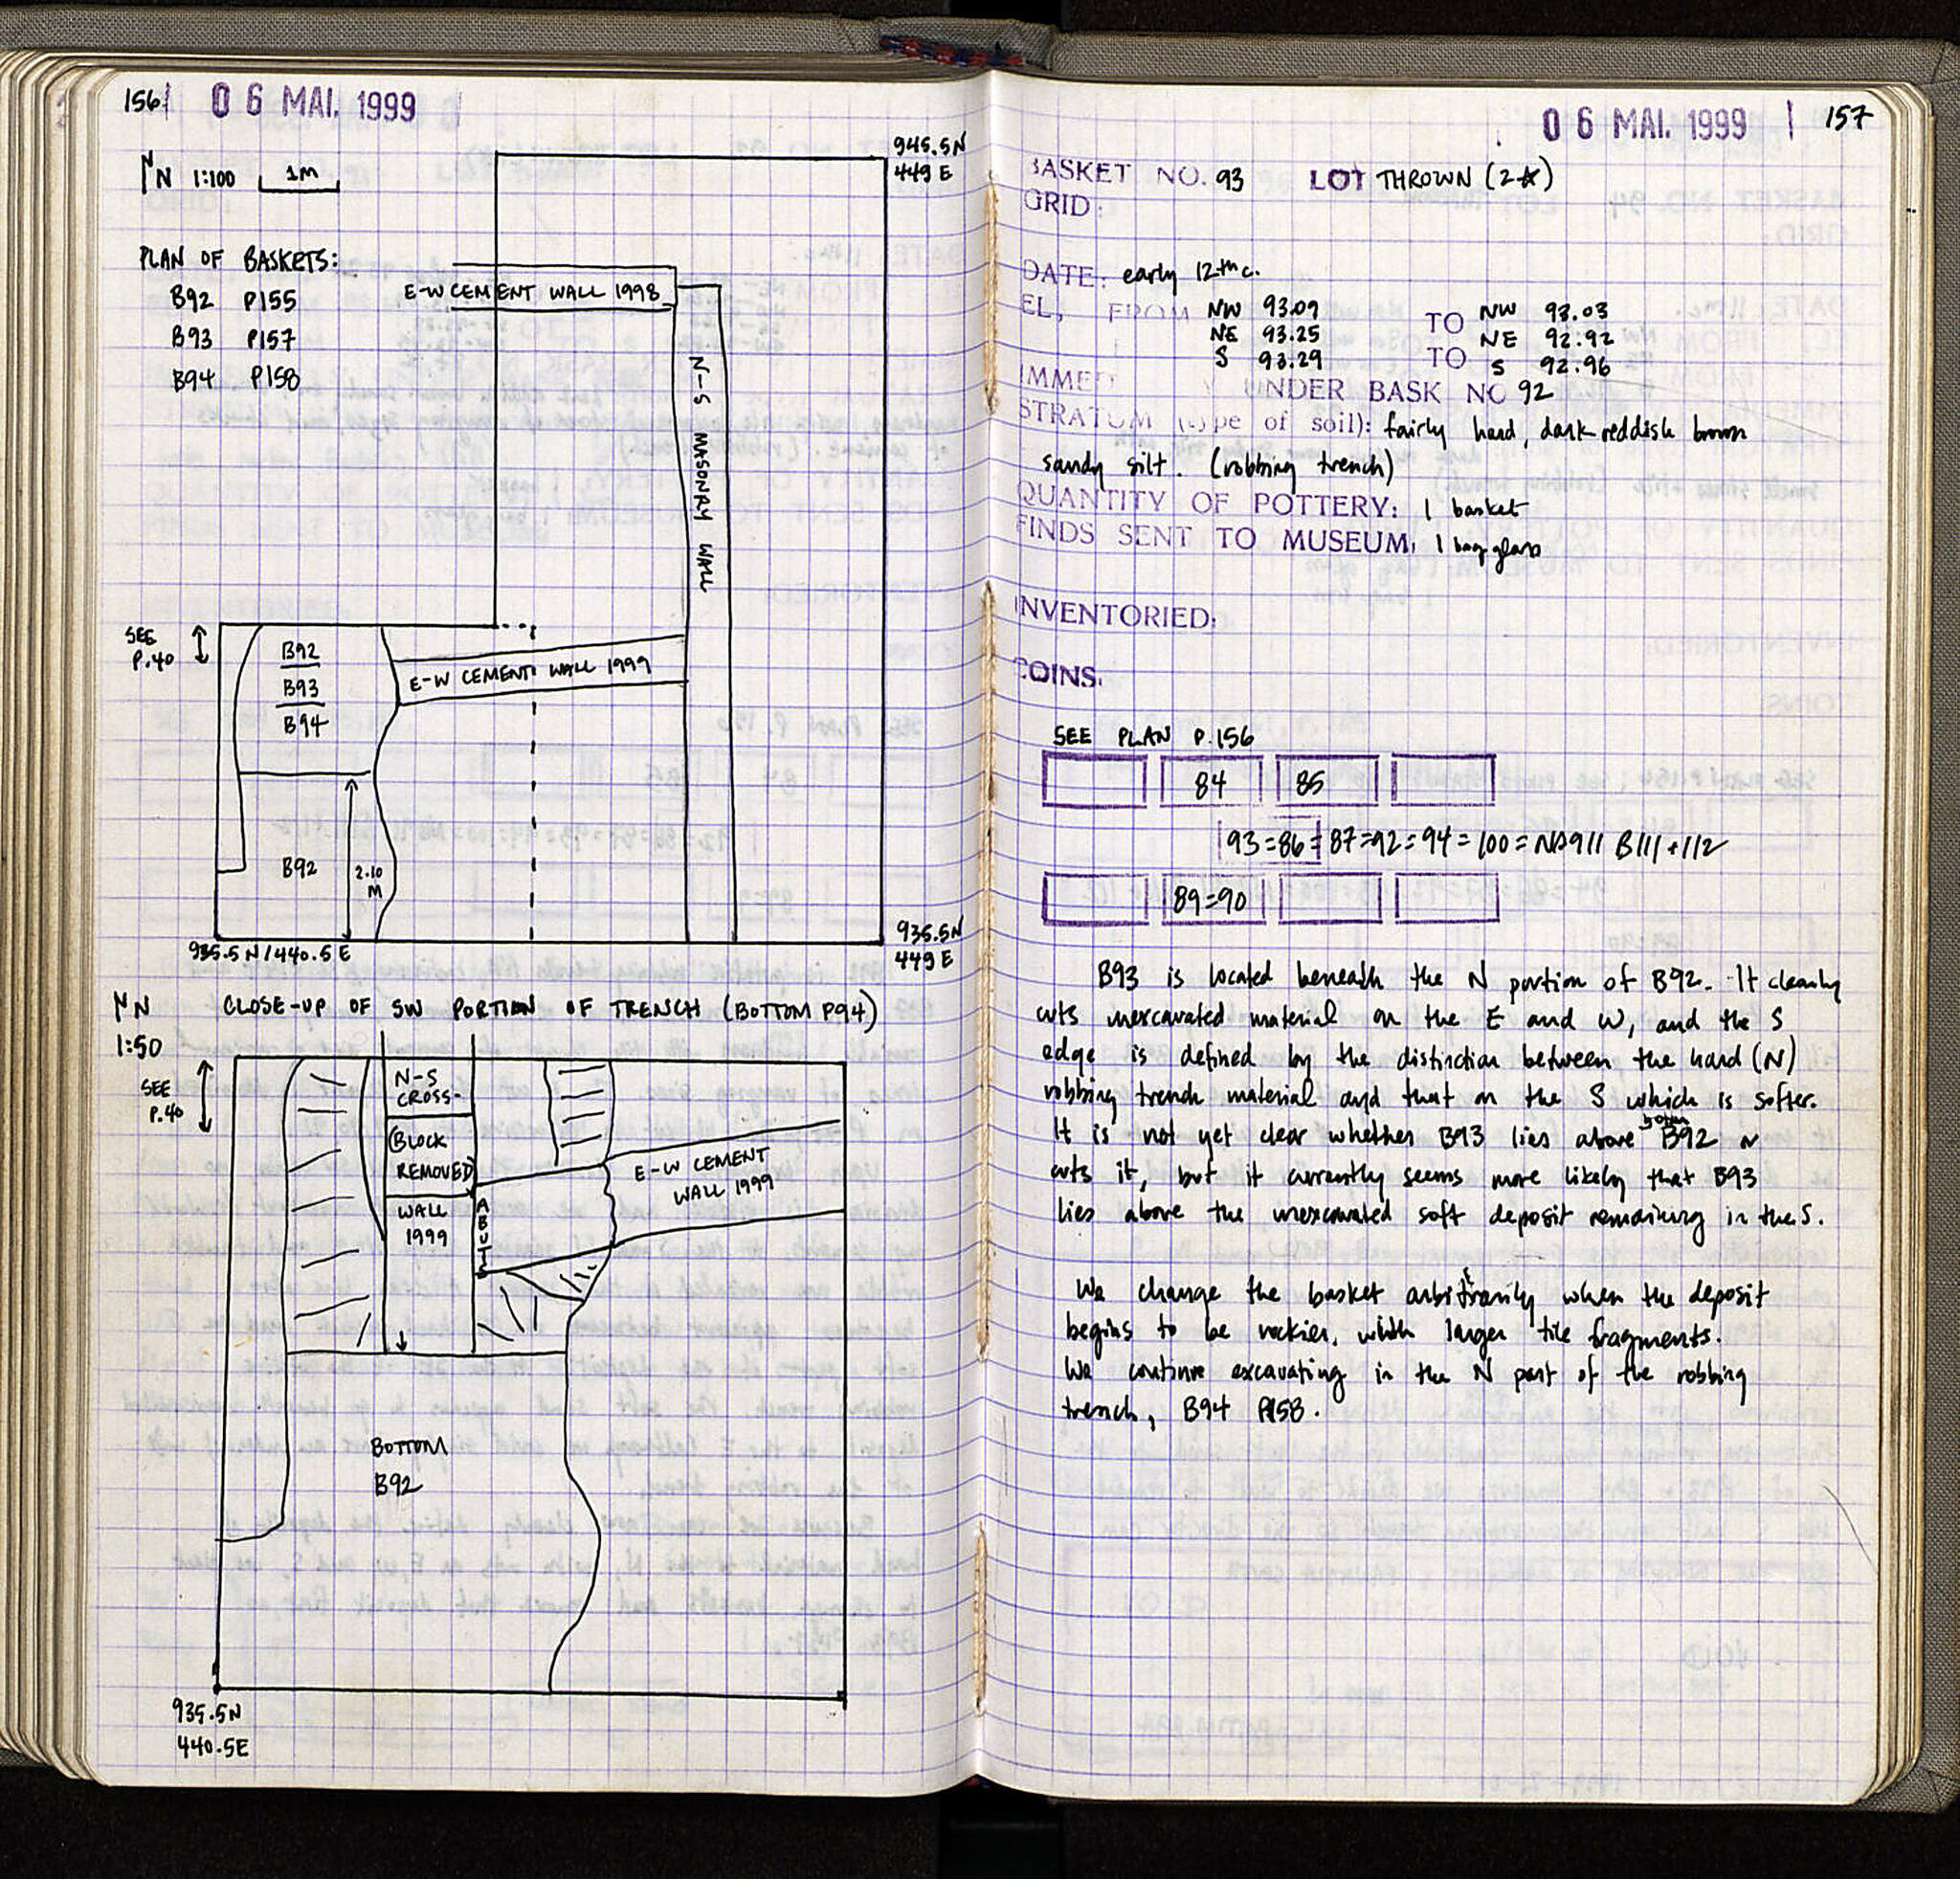 156 06 MAI. 1999
N N 1:100 1M
945.5N
449 E
PLAN OF BASKETS:
B92 P155
B93 P157
B94 P158
E-W CEMENT WALL 1998
N-S MASONRY WALL
SEE
P.40
B92
B93
B94
E-W CEMENT WALL 1999
B92
2.10
M
935.5N/440.5E
935.5N
449E
N CLOSE-UP OF SW PORTION OF TRENCH (BOTTOM P94)
1:50
SEE
P.40
N-S
CROSS-
(BLOCK
REMOVED)
WALL
1999
ABUTS
E-W CEMENT
WALL 1999
BOTTOM
B92
935.5N
440.5E
06 MAI. 1999 157
BASKET NO. 93 LOT THROWN (2☆)
GRID:
DATE: early 12th c.
EL, FROM NW 93.09 TO NW 93.03
NE 93.25 NE 92.92
S 93.29 TO S 92.96
IMMED Y UNDER BASK NO 92
STRATUM (type of soil): fairly hard, dark reddish brown
sandy silt. (robbing trench)
QUANTITY OF POTTERY: 1 basket
FINDS SENT TO MUSEUM: 1 bag glass
INVENTORIED:
COINS.
SEE PLAN P.156
84 85
93=86=87=92=94=100=NB911 B111+112
89=90
B93 is located beneath the N portion of B92. It clearly
cuts unexcavated material on the E and W, and the S
edge is defined by the distinction between the hard (N)
robbing trench material and that on the S which is softer.
It is not yet clear whether B93 lies above B92 or
cuts it, but it currently seems more likely that B93
lies above the unexcavated soft deposit remaining in the S.
We change the basket arbitrarily when the deposit
begins to be rockier, with larger tile fragments.
We continue excavating in the N part of the robbing
trench, B94 P158.